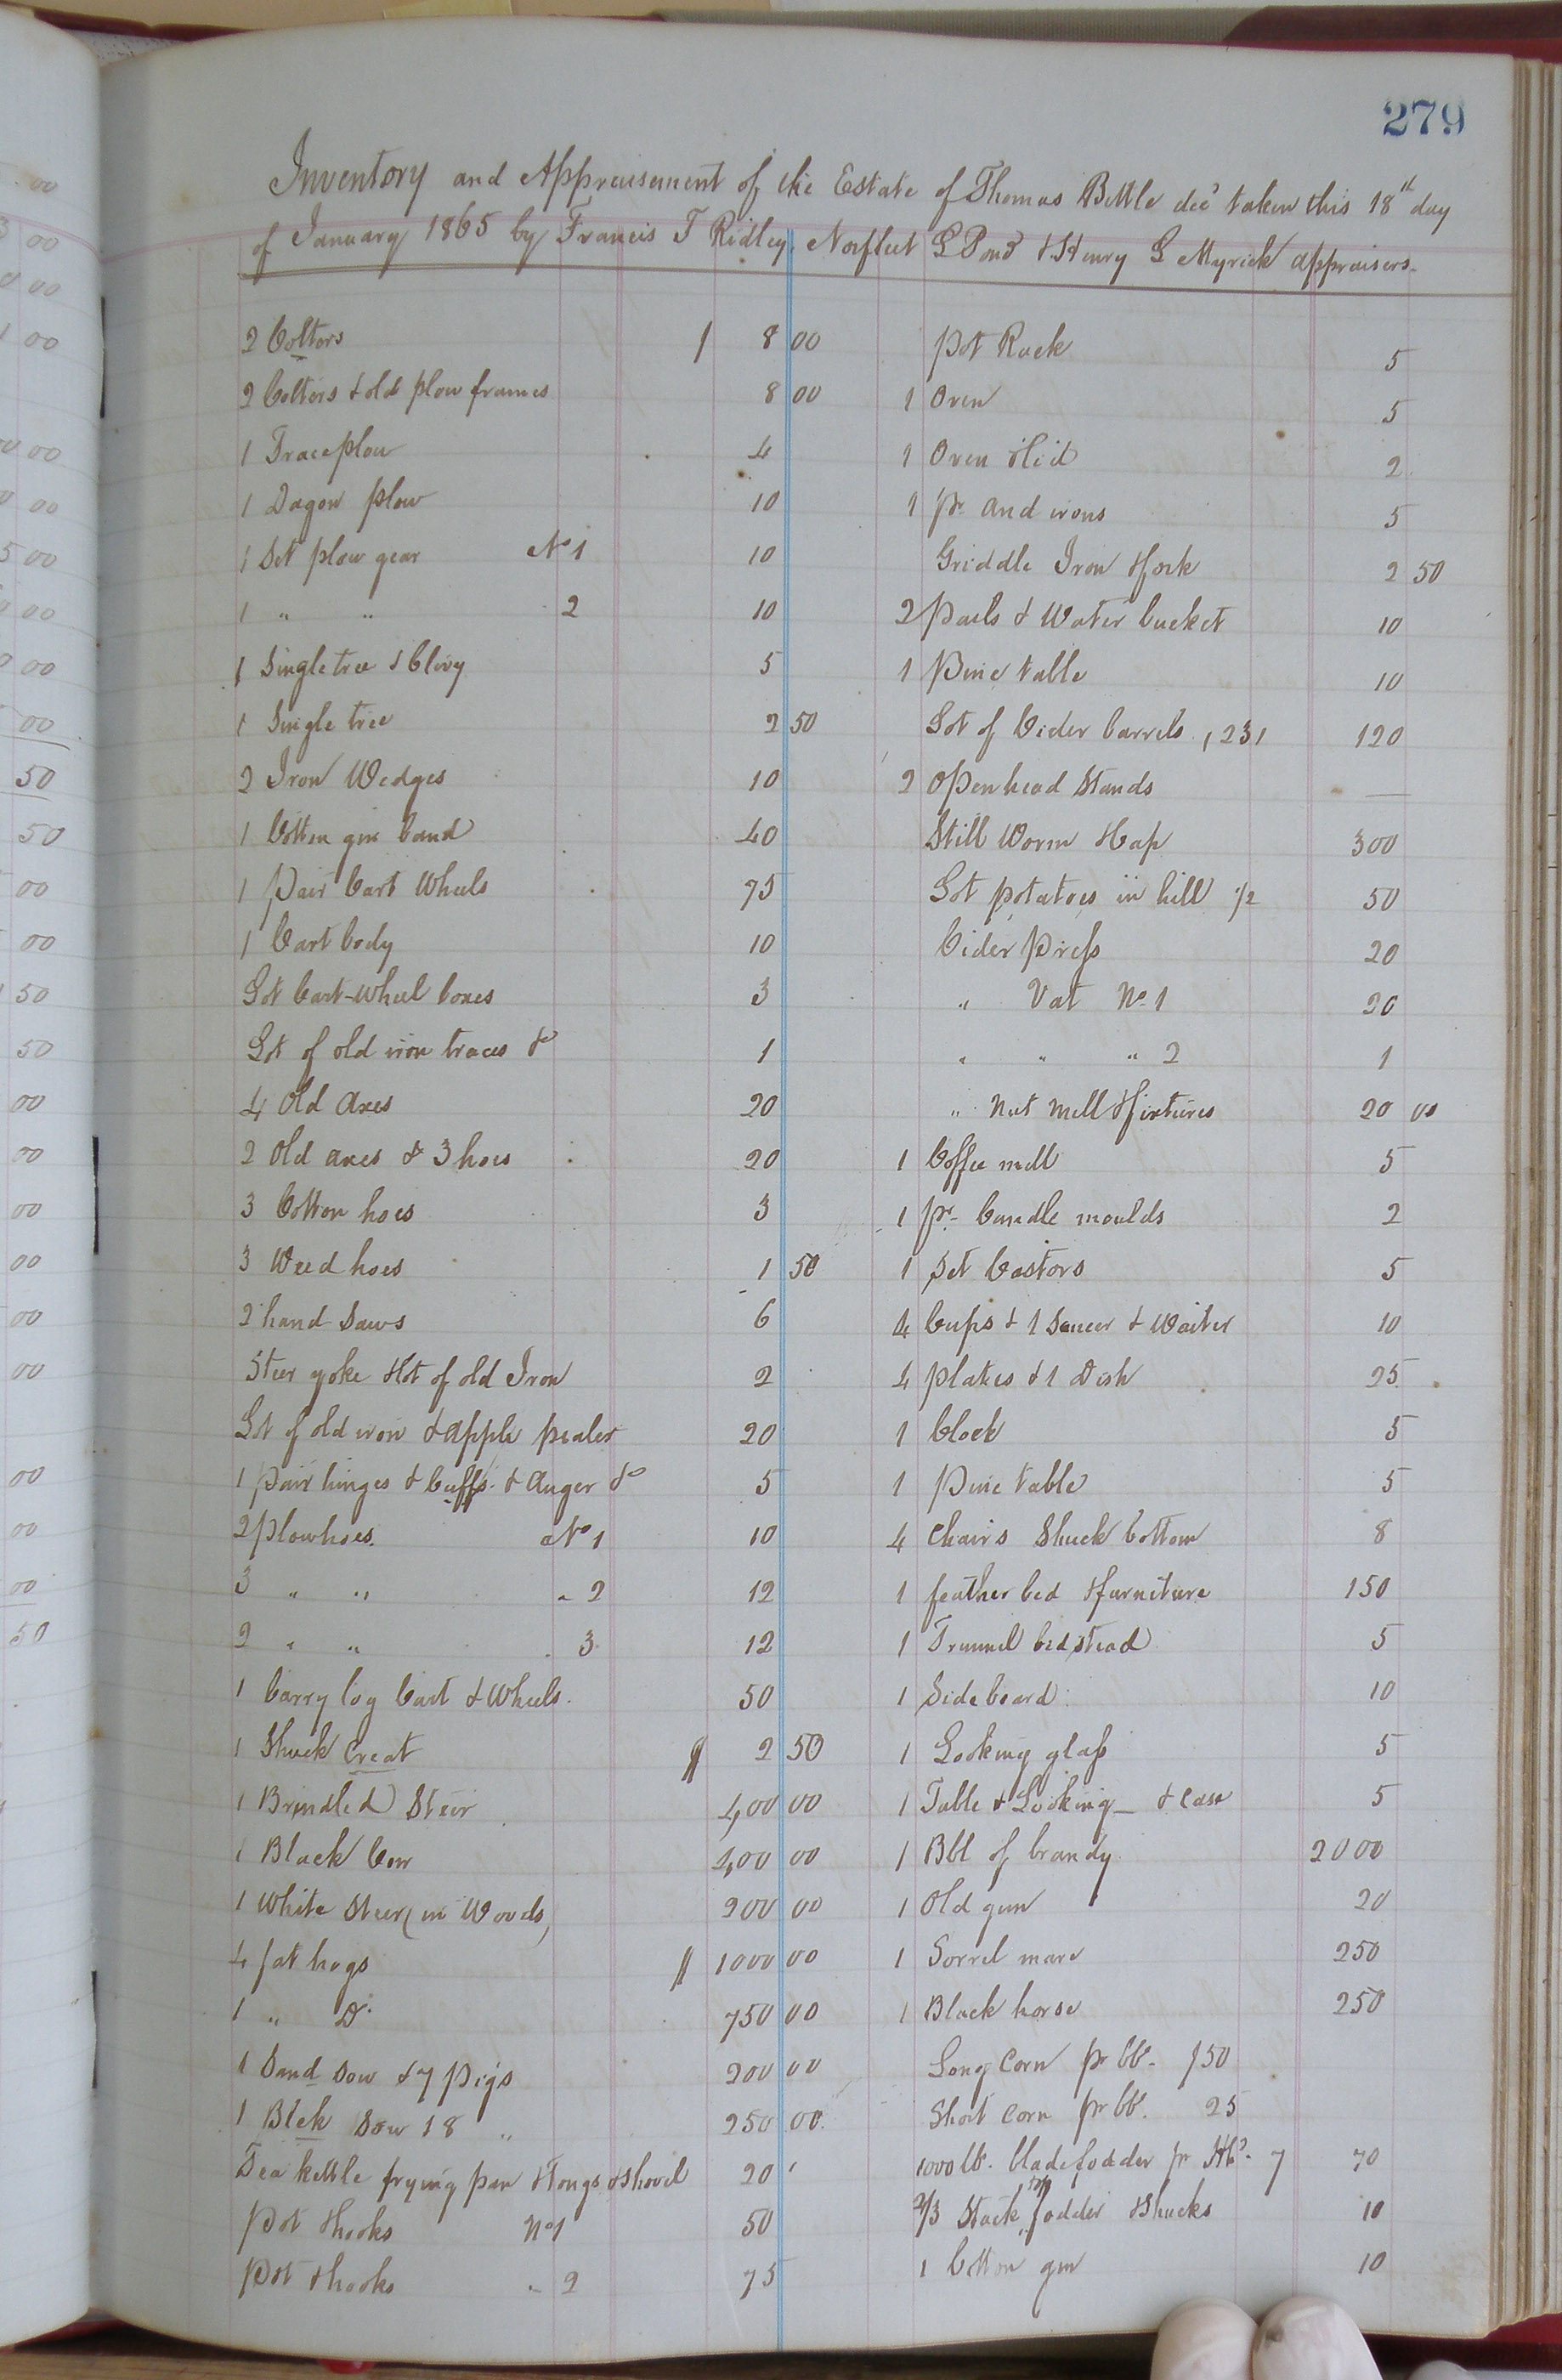 279
Inventory and Appraisement of the Estate of Thomas Bittle decd taken this 18th day
of January 1865 by Francis T Ridley, Norfleet L Pond & Henry L Myrick appraisers
2 Coltors 8 00
2 Colters & old plow frames 8 00
1 Trace plow 4
1 Dagon plow 10
1 Set plow gear No 1 10
1 " " 2 10
1 Singletree & Clivy 5
1 Single tree 2 50
2 Iron Wedges 10
1 Cotton gin band 40
1 Pair Cart Wheels 75
1 Cart body 10
Lot Cart-wheel boxes 3
Lot of old iron traces &c 1
4 Old Axes 20
2 Old axes & 3 hoes 20
3 Cotton hoes 3
3 Weed hoes 1 50
2 hand Saws 6
Steer yoke & lot of old Iron 2
Lot of old iron & apple pealer 20
1 Pair hinges & Cuffs & Auger &c 5
2 Plowhoes No 1 10
3 " " " 2 12
2 " " " 3 12
1 Carry log Cart & Wheels 50
1 Shuck Creat 2 50
1 Brindled Steer 400 00
1 Black Cow 400 00
1 White Steer (in Woods) 200 00
4 fat hogs 1000 00
1 " Do 750 00
1 Sand Sow & 7 Pigs 200 00
1 Blck Sow 18 " 250 00
Tea kettle frying pan & tongs & shovel 20
Pot & hooks No 1 50
Pot & hooks " 2 75
Pot Rack 5
1 Oven 5
1 Oven & lid 2
1 Pr And irons 5
Griddle Iron & fork 2 50
2 Pails & Water bucket 10
1 Pine table 10
Lot of Cider barrels (23) 120
2 Open head Stands —
Still Worm & Cap 300
Lot potatoes in hill 1/2 50
Cider Press 20
" Vat No 1 20
" " " 2 1
" Nut Mill & fixtures 20 00
1 Coffee mill 5
1 pr Candle moulds 2
1 Set Castors 5
4 Cups & 1 Saucer & Waiter 10
4 plates & 1 Dish 25
1 Clock 5
1 Pine table 5
4 Chairs Shuck bottom 8
1 feather bed & furniture 150
1 Trunnel bedstead 5
1 Sideboard 10
1 Looking glass 5
1 Table & Looking — & Case 5
1 Bbl of brandy 2000
1 Old gun 20
1 Sorrel mare 250
1 Black horse 250
Long Corn pr bbl. $50
Short Corn pr bbl. 25
1000 lb. blade fodder pr Hd 7 70
2/3 Stack fodder & Shucks 10
1 Cotton gin 10